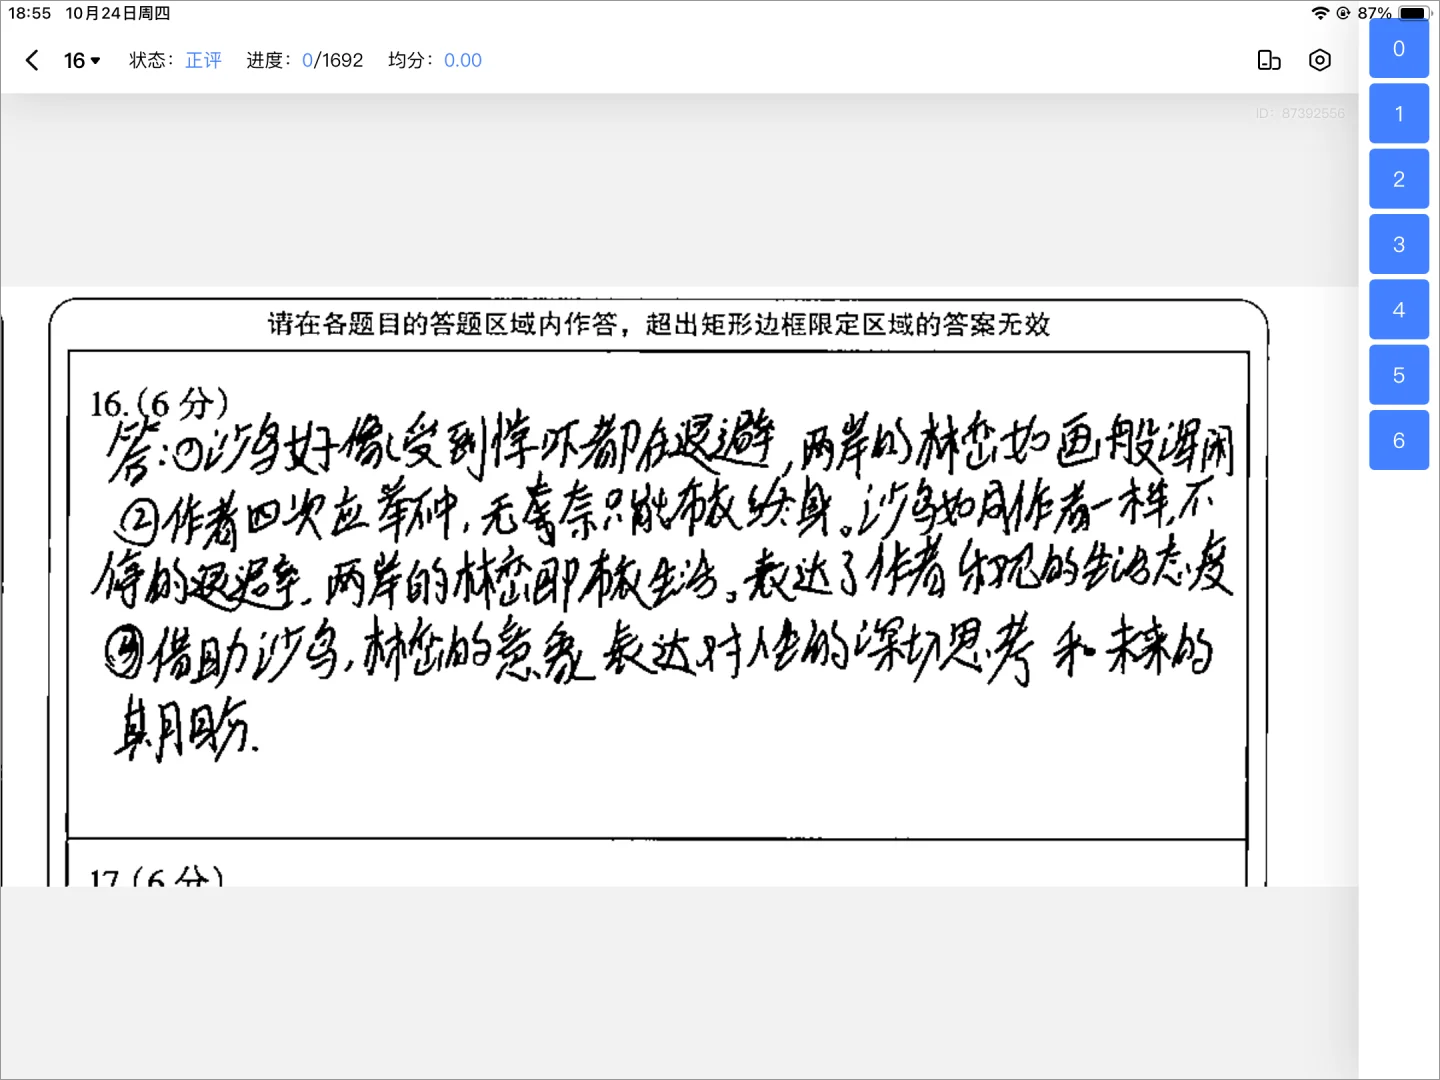 18:55 10月24日周四
87%
16 状态：正评 进度：0/1692 均分：0.00
ID：87392556
0
1
2
3
4
5
6
请在各题目的答题区域内作答，超出矩形边框限定区域的答案无效
16.(6 分)
答:①沙鸟好像受到惊吓都在退避,两岸的林峦如画般深闲
②作者四次应举不中,无奈只能布衣终身。沙鸟如同作者一样,不
停的退避,两岸的林峦即布衣生活。表达了作者 的生活态度
③借助沙鸟,林峦的意象 表达对人生的深切思考 和未来的
期盼.
17.(6 分)